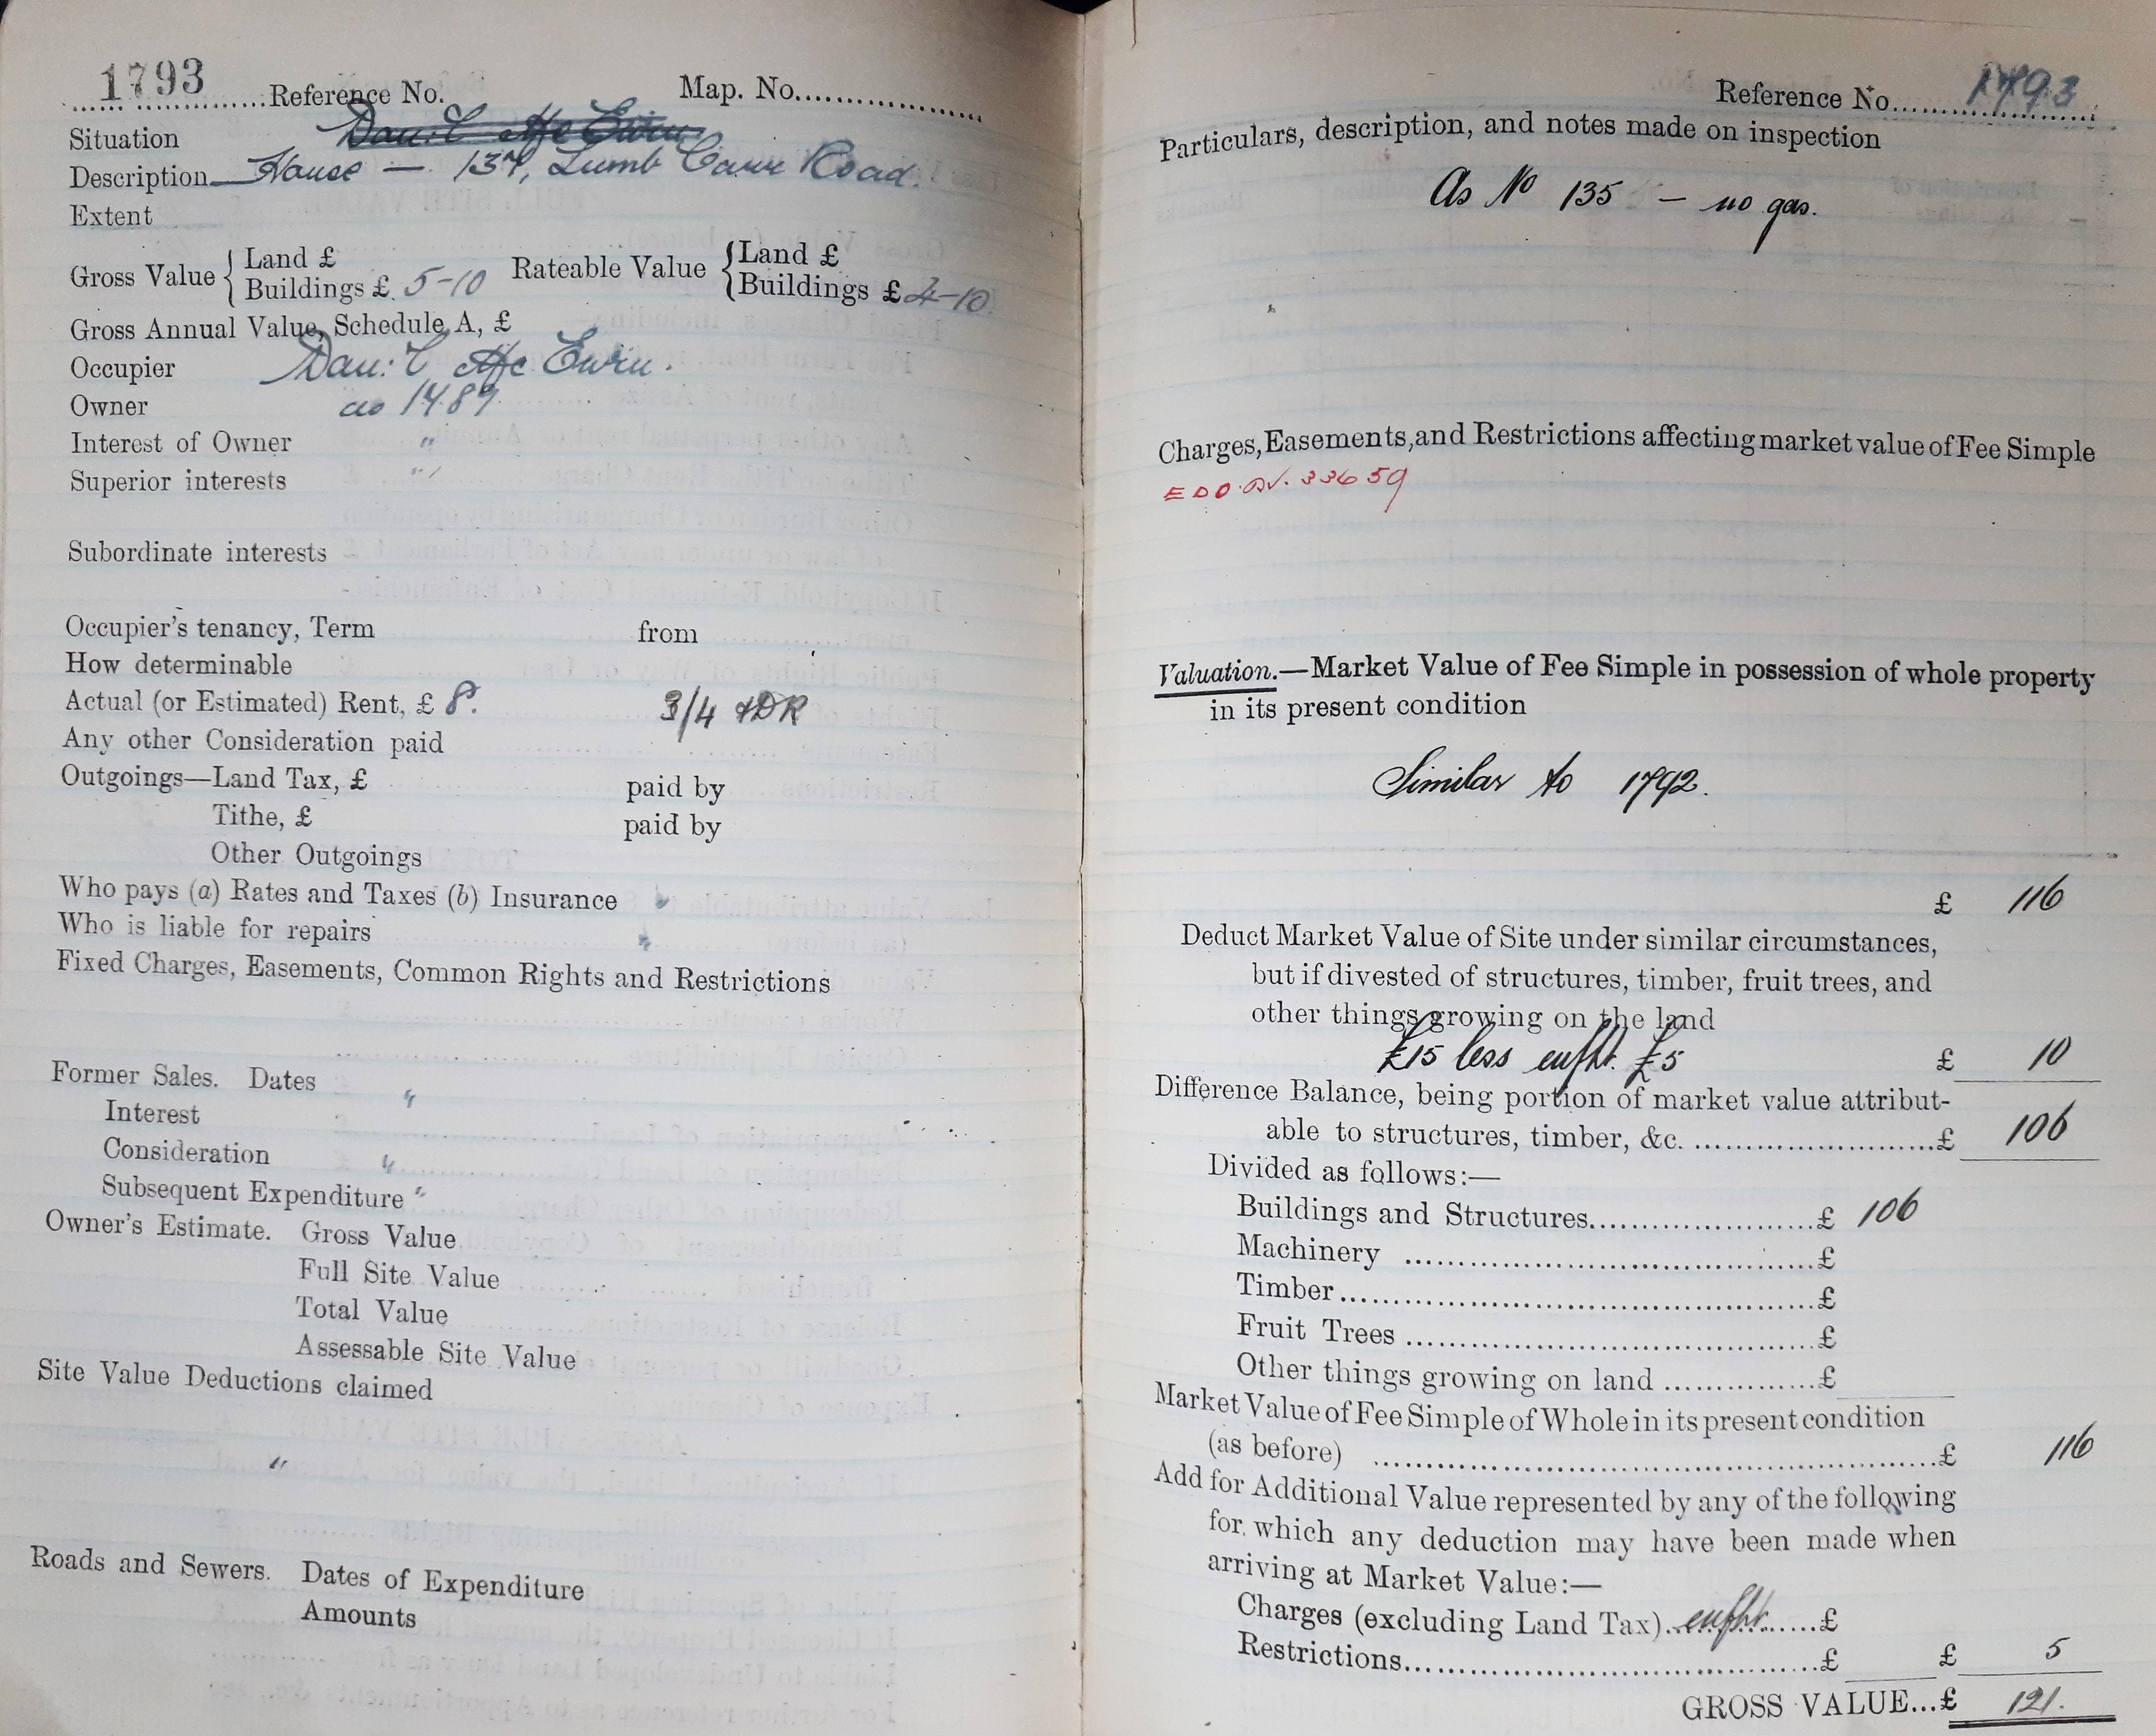 1793 Reference No. Map. No.
Situation Dan: C Mc Ewin
Description House — 137, Lumb Carr Road.
Extent
Gross Value { Land £ Rateable Value { Land £
Buildings £ 5-10 Buildings £ 4-10
Gross Annual Value, Schedule A, £
Occupier Dan: C Mc Ewin.
Owner as 1489
Interest of Owner "
Superior interests "
Subordinate interests
Occupier's tenancy, Term from
How determinable
Actual (or Estimated) Rent, £ 8. 3/4 DR
Any other Consideration paid
Outgoings—Land Tax, £ paid by
Tithe, £ paid by
Other Outgoings
Who pays (a) Rates and Taxes (b) Insurance "
Who is liable for repairs "
Fixed Charges, Easements, Common Rights and Restrictions
Former Sales. Dates "
Interest
Consideration "
Subsequent Expenditure "
Owner's Estimate. Gross Value
Full Site Value
Total Value
Assessable Site Value
Site Value Deductions claimed
"
Roads and Sewers. Dates of Expenditure
Amounts
Reference No. 1793
Particulars, description, and notes made on inspection
As No 135 — no gas.
Charges, Easements, and Restrictions affecting market value of Fee Simple
33659
Valuation.—Market Value of Fee Simple in possession of whole property
in its present condition
Similar to 1792.
£ 116
Deduct Market Value of Site under similar circumstances,
but if divested of structures, timber, fruit trees, and
other things growing on the land
£15 less enfht. £5 £ 10
Difference Balance, being portion of market value attribut-
able to structures, timber, &c. £ 106
Divided as follows:—
Buildings and Structures £ 106
Machinery £
Timber £
Fruit Trees £
Other things growing on land £
Market Value of Fee Simple of Whole in its present condition
(as before) £ 116
Add for Additional Value represented by any of the following
for which any deduction may have been made when
arriving at Market Value:—
Charges (excluding Land Tax) enfht. £
Restrictions £ £ 5
GROSS VALUE...£ 121.